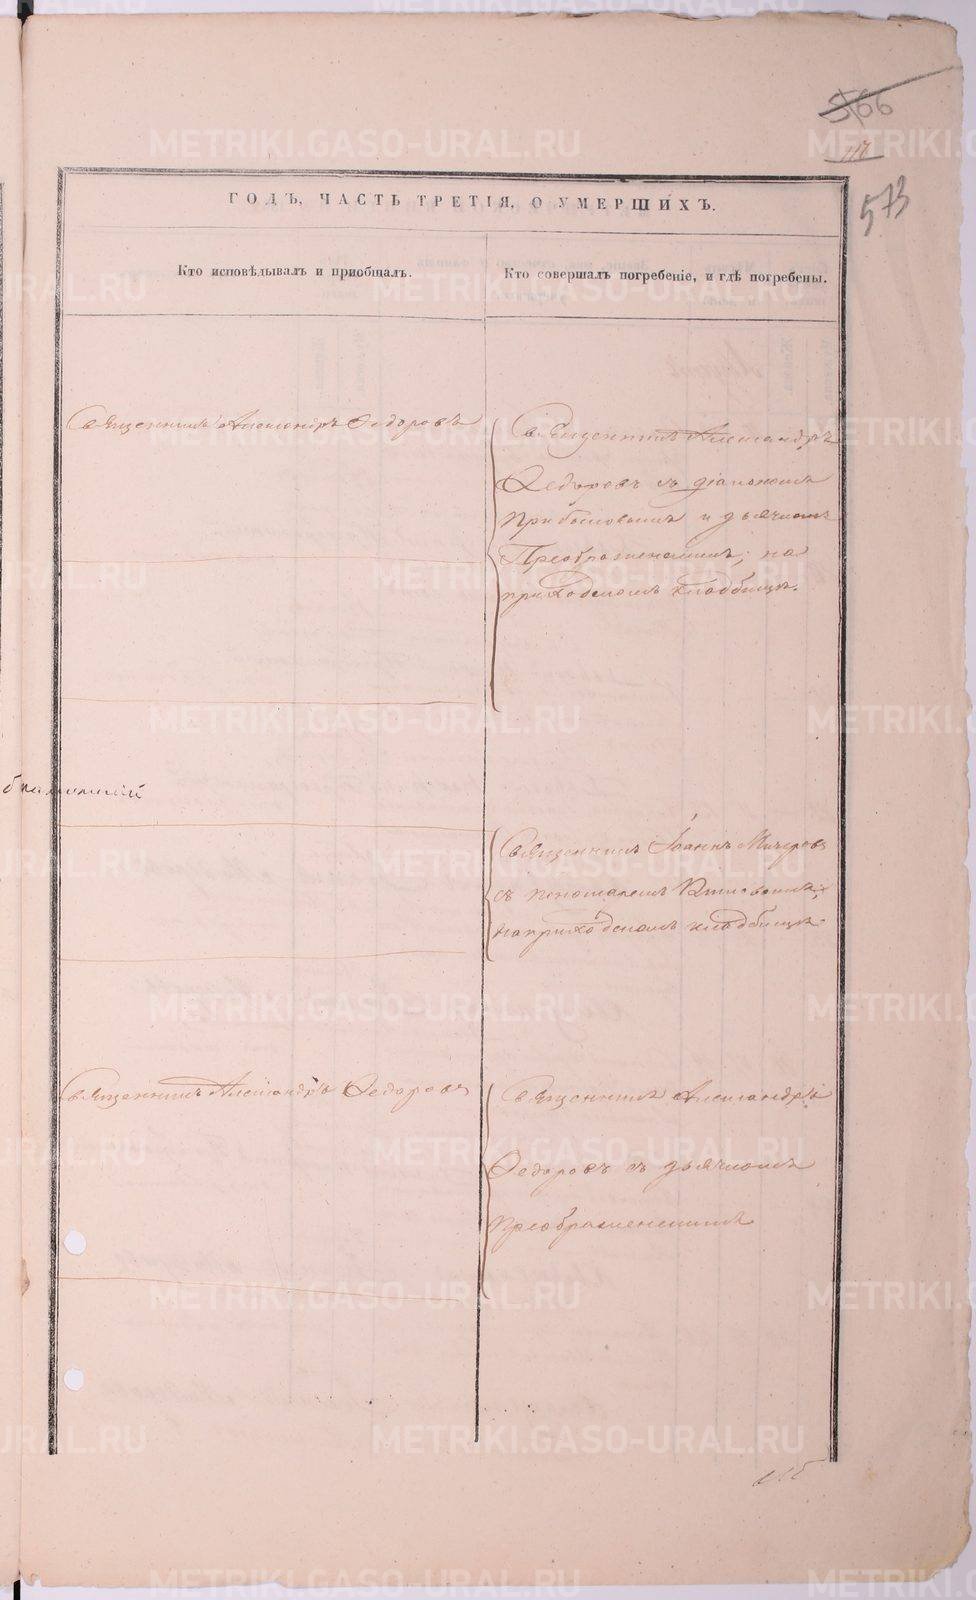 566
117
573
ГОДЪ, ЧАСТЬ ТРЕТІЯ, О УМЕРШИХЪ.
Кто исповѣдывалъ и пріобщалъ.
Кто совершалъ погребеніе, и гдѣ погребены.
Священникъ Александръ Федоровъ
Священникъ Александръ
Федоровъ съ діакономъ
и дьячкомъ
Преображенскимъ, на
приходскомъ кладбищѣ.
Священникъ Іоаннъ
съ пономаремъ
на приходскомъ кладбищѣ.
Священникъ Александръ Федоровъ
Священникъ Александръ
Федоровъ съ дьячкомъ
Преображенскимъ
METRIKI.GASO-URAL.RU